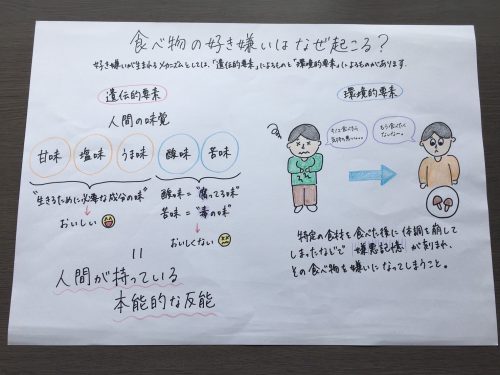 食べ物の好き嫌いはなぜ起こる?
好き嫌いが生まれるメカニズムとしては、「遺伝的要素」によるものと「環境的要素」によるものがあります。
遺伝的要素
人間の味覚
甘味 塩味 うま味 酸味 苦味
"生きるために必要な成分の味"
おいしい
酸味="腐ってる味"
苦味="毒の味"
おいしくない
=
人間が持っている
本能的な反能
環境的要素
もう食べたく
ないな〜。
特定の食材を食べた後に体調を崩して
しまったなどで嫌悪記憶が刻まれ、
その食べ物を嫌いになってしまうこと。